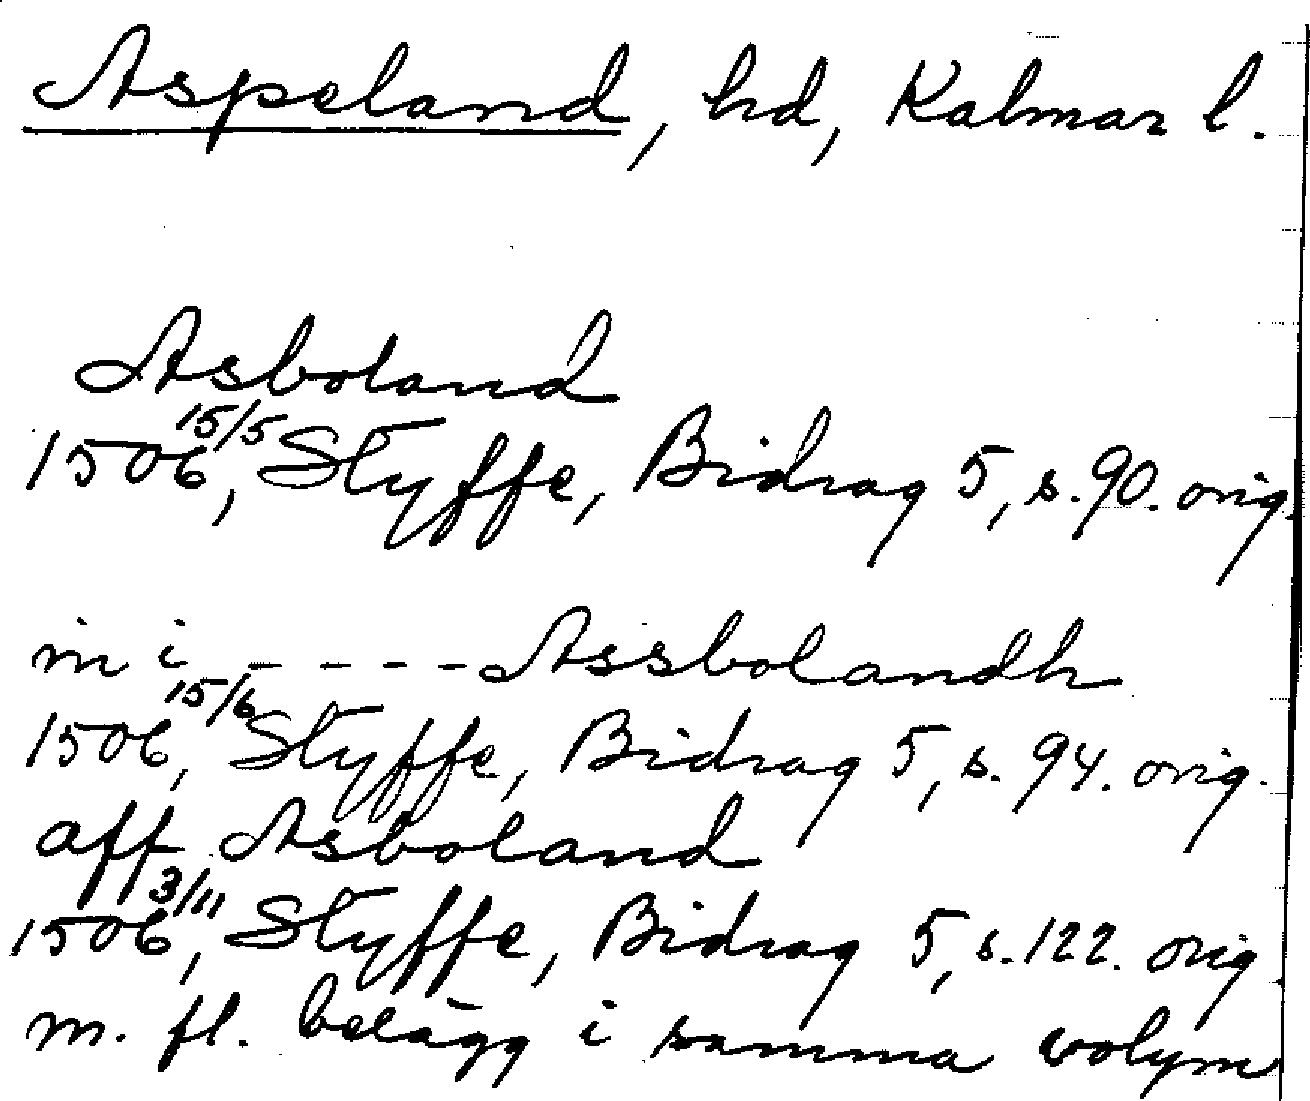 Aspeland, hd, Kalmar l.
Asboland
1506 15/5, Styffe, Bidrag 5, s. 90. orig.
in i - - - - Assbolandh
1506 15/6, Styffe, Bidrag 5, s. 94. orig.
aff Asboland
1506 3/11, Styffe, Bidrag 5, s. 122. orig.
m. fl. belägg i samma volym